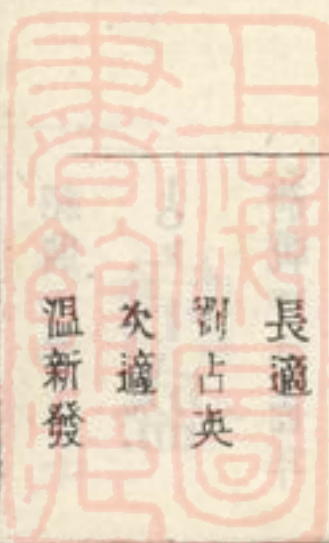 長適
劉占英
次適
溫新發